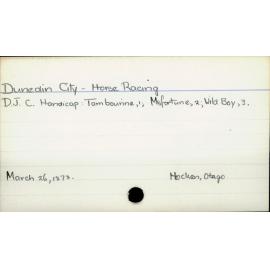 Dunedin City - Horse Racing
D.J.C. Handicap: Tambourine, 1, Misfortune, 2, Wild Boy, 3.
March 26, 1873.
Hocken, Otago